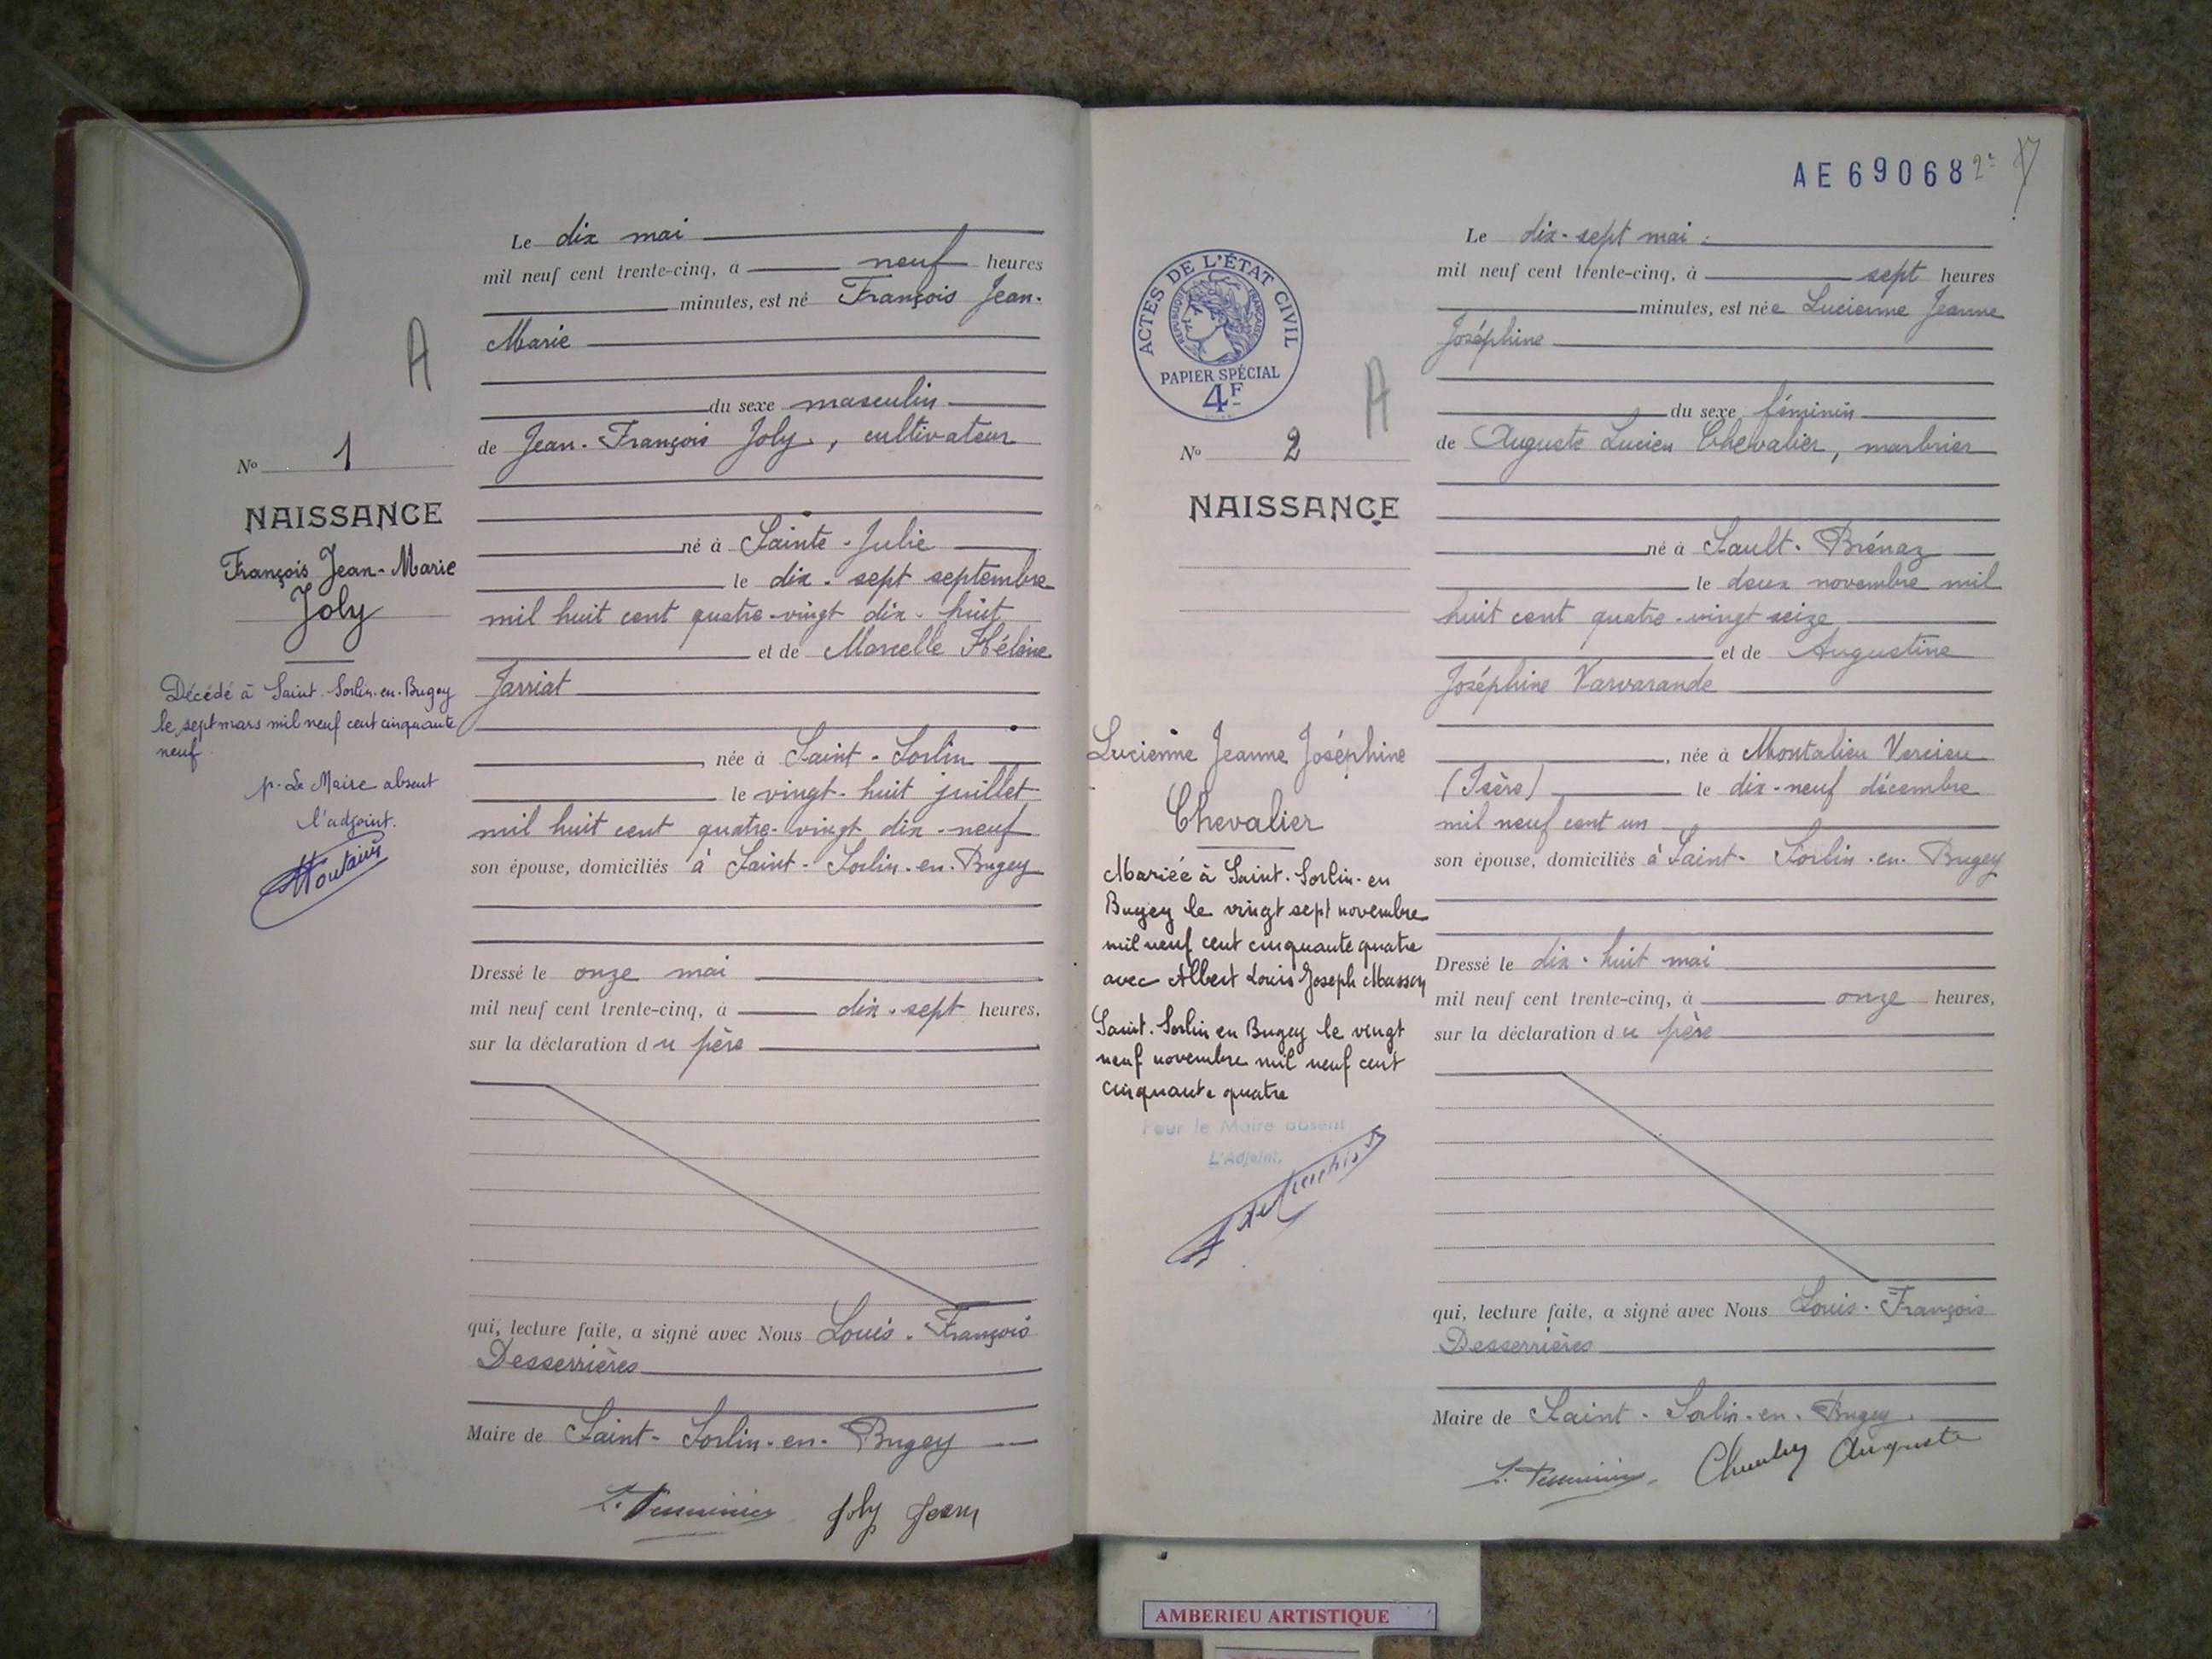 A
N° 1
NAISSANCE
François Jean-Marie
Joly
Décédé à Saint-Sorlin-en-Bugey
le sept mars mil neuf cent cinquante
neuf
p. Le Maire absent
l'adjoint.
Le dix mai
mil neuf cent trente-cinq, à neuf heures
minutes, est né François Jean-
Marie
du sexe masculin
de Jean-François Joly, cultivateur
né à Sainte-Julie
le dix-sept septembre
mil huit cent quatre-vingt dix-huit
et de Marcelle Hélène
Jarriat
, née à Saint-Sorlin
le vingt-huit juillet
mil huit cent quatre-vingt dix-neuf
son épouse, domiciliés à Saint-Sorlin-en-Bugey
Dressé le onze mai
mil neuf cent trente-cinq, à dix-sept heures,
sur la déclaration du père
qui, lecture faite, a signé avec Nous Louis-François
Desserrières
Maire de Saint-Sorlin-en-Bugey
Joly Jean
AE 69068
ACTES DE L'ÉTAT CIVIL
RÉPUBLIQUE FRANÇAISE
PAPIER SPÉCIAL
4F
A
N° 2
NAISSANCE
Lucienne Jeanne Joséphine
Chevalier
Mariée à Saint-Sorlin-en
Bugey le vingt sept novembre
mil neuf cent cinquante quatre
avec Albert Louis Joseph Masson
Saint-Sorlin en Bugey le vingt
neuf novembre mil neuf cent
cinquante quatre
Pour le Maire absent
L'Adjoint,
Le dix-sept mai
mil neuf cent trente-cinq, à sept heures
minutes, est née Lucienne Jeanne
Joséphine
du sexe féminin
de Auguste Lucien Chevalier, marbrier
né à Sault-Brénaz
le deux novembre mil
huit cent quatre-vingt seize
et de Augustine
Joséphine Varvarande
, née à Montalieu Vercieu
(Isère) le dix-neuf décembre
mil neuf cent un
son épouse, domiciliés à Saint-Sorlin-en-Bugey
Dressé le dix-huit mai
mil neuf cent trente-cinq, à onze heures,
sur la déclaration du père
qui, lecture faite, a signé avec Nous Louis-François
Desserrières
Maire de Saint-Sorlin-en-Bugey.
Auguste
AMBERIEU ARTISTIQUE